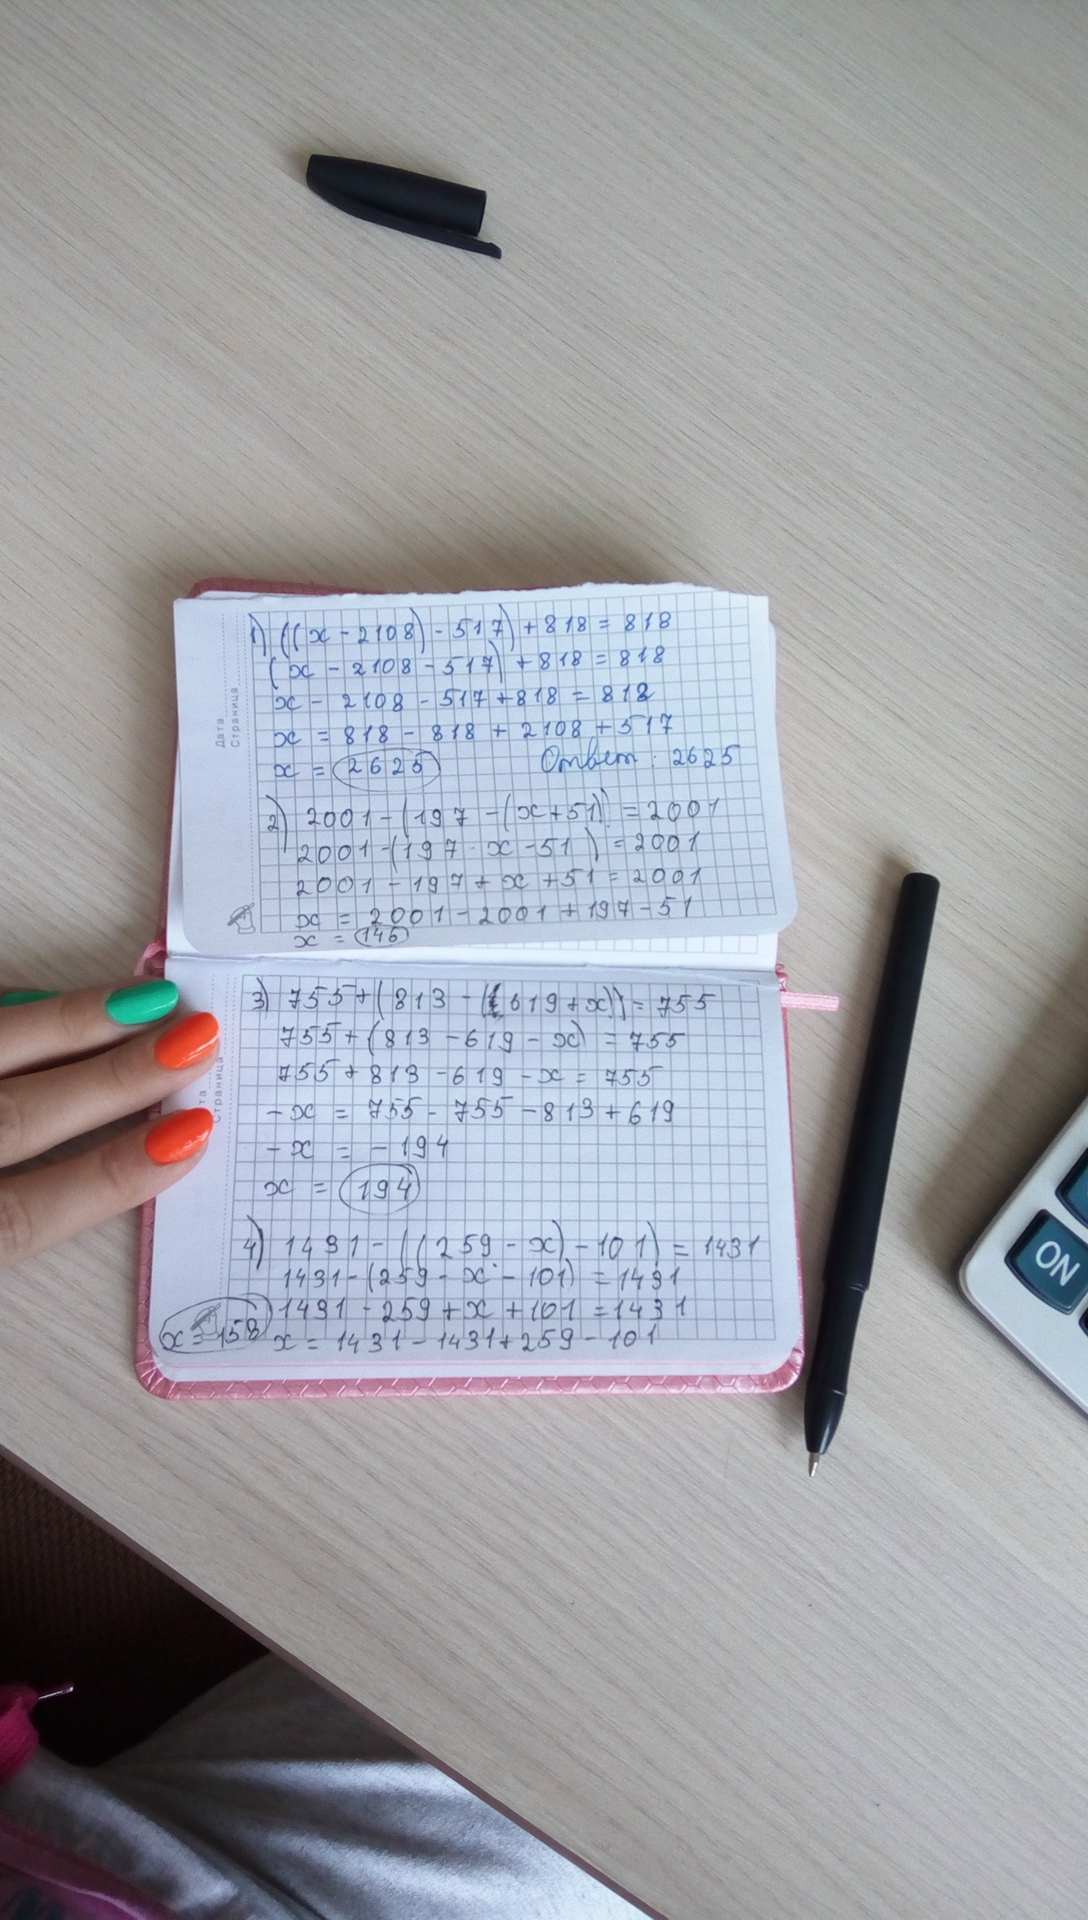 Дата
Страница
1) ((x - 2108) - 517) + 818 = 818
(x - 2108 - 517) + 818 = 818
x - 2108 - 517 + 818 = 818
x = 818 - 818 + 2108 + 517
x = 2625 Ответ: 2625
2) 2001 - (197 - (x + 51)) = 2001
2001 - (197 - x - 51) = 2001
2001 - 197 + x + 51 = 2001
x = 2001 - 2001 + 197 - 51
x = 146
3) 755 + (813 - (619 + x)) = 755
755 + (813 - 619 - x) = 755
755 + 813 - 619 - x = 755
- x = 755 - 755 - 813 + 619
- x = - 194
x = 194
та
Страница
4) 1431 - ((259 - x) - 101) = 1431
1431 - (259 - x - 101) = 1431
1431 - 259 + x + 101 = 1431
x = 1431 - 1431 + 259 - 101
x = 158
ON